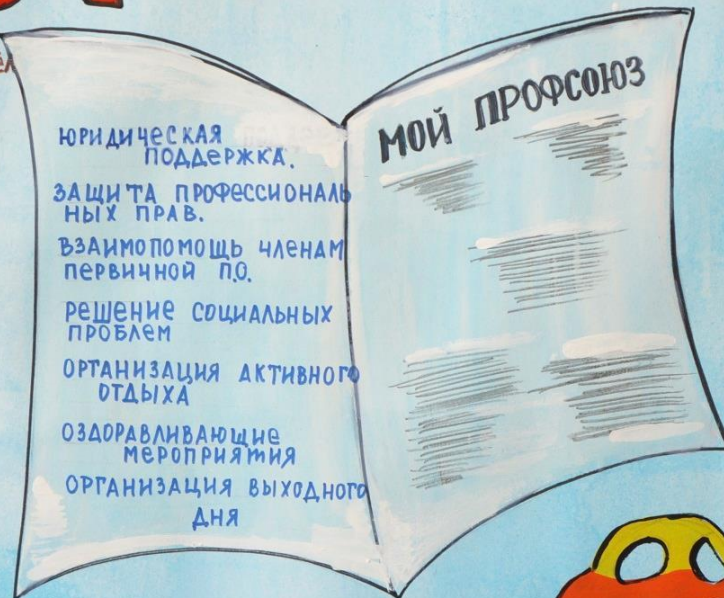 ЮРИДИЧЕСКАЯ
ПОДДЕРЖКА.
ЗАЩИТА ПРОФЕССИОНАЛЬ
НЫХ ПРАВ.
ВЗАИМОПОМОЩЬ ЧЛЕНАМ
ПЕРВИЧНОЙ П.О.
РЕШЕНИЕ СОЦИАЛЬНЫХ
ПРОБЛЕМ
ОРГАНИЗАЦИЯ АКТИВНОГО
ОТДЫХА
ОЗДОРАВЛИВАЮЩИЕ
МЕРОПРИЯТИЯ
ОРГАНИЗАЦИЯ ВЫХОДНОГО
ДНЯ
МОЙ ПРОФСОЮЗ